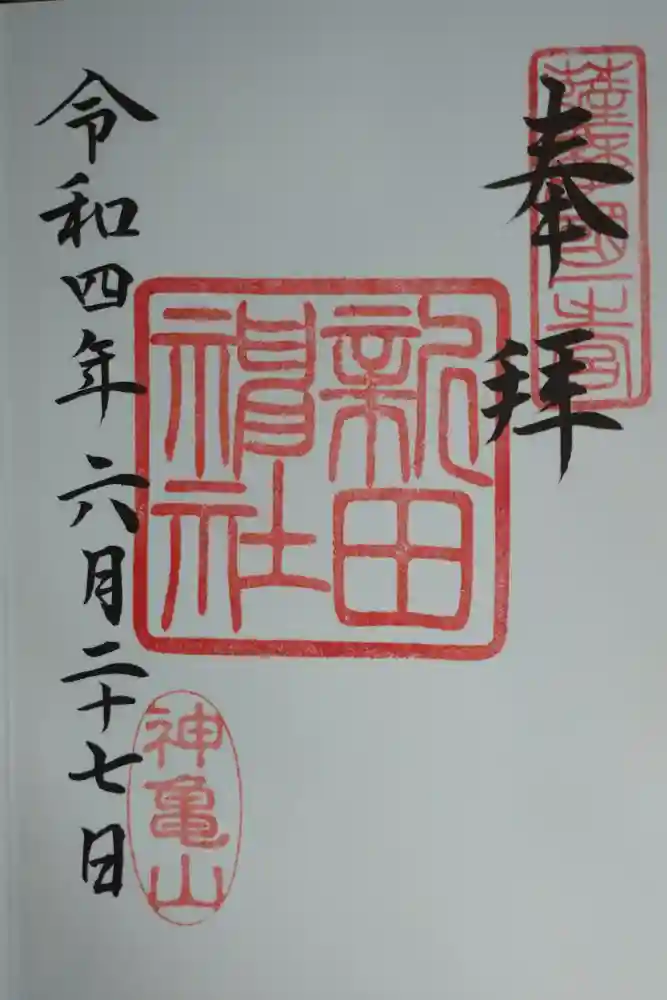 薩摩國一宮
奉拝
新田
神社
令和四年六月二十七日
神亀山